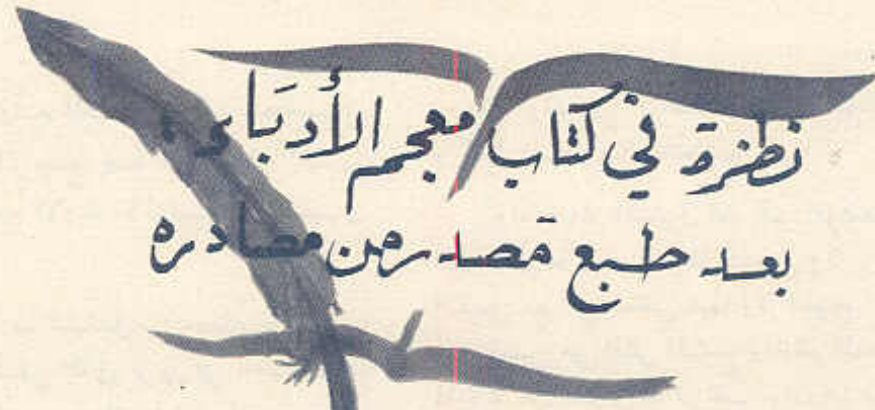 نظرة في كتاب معجم الأدباء
بعد طبع مصدر من مصادره